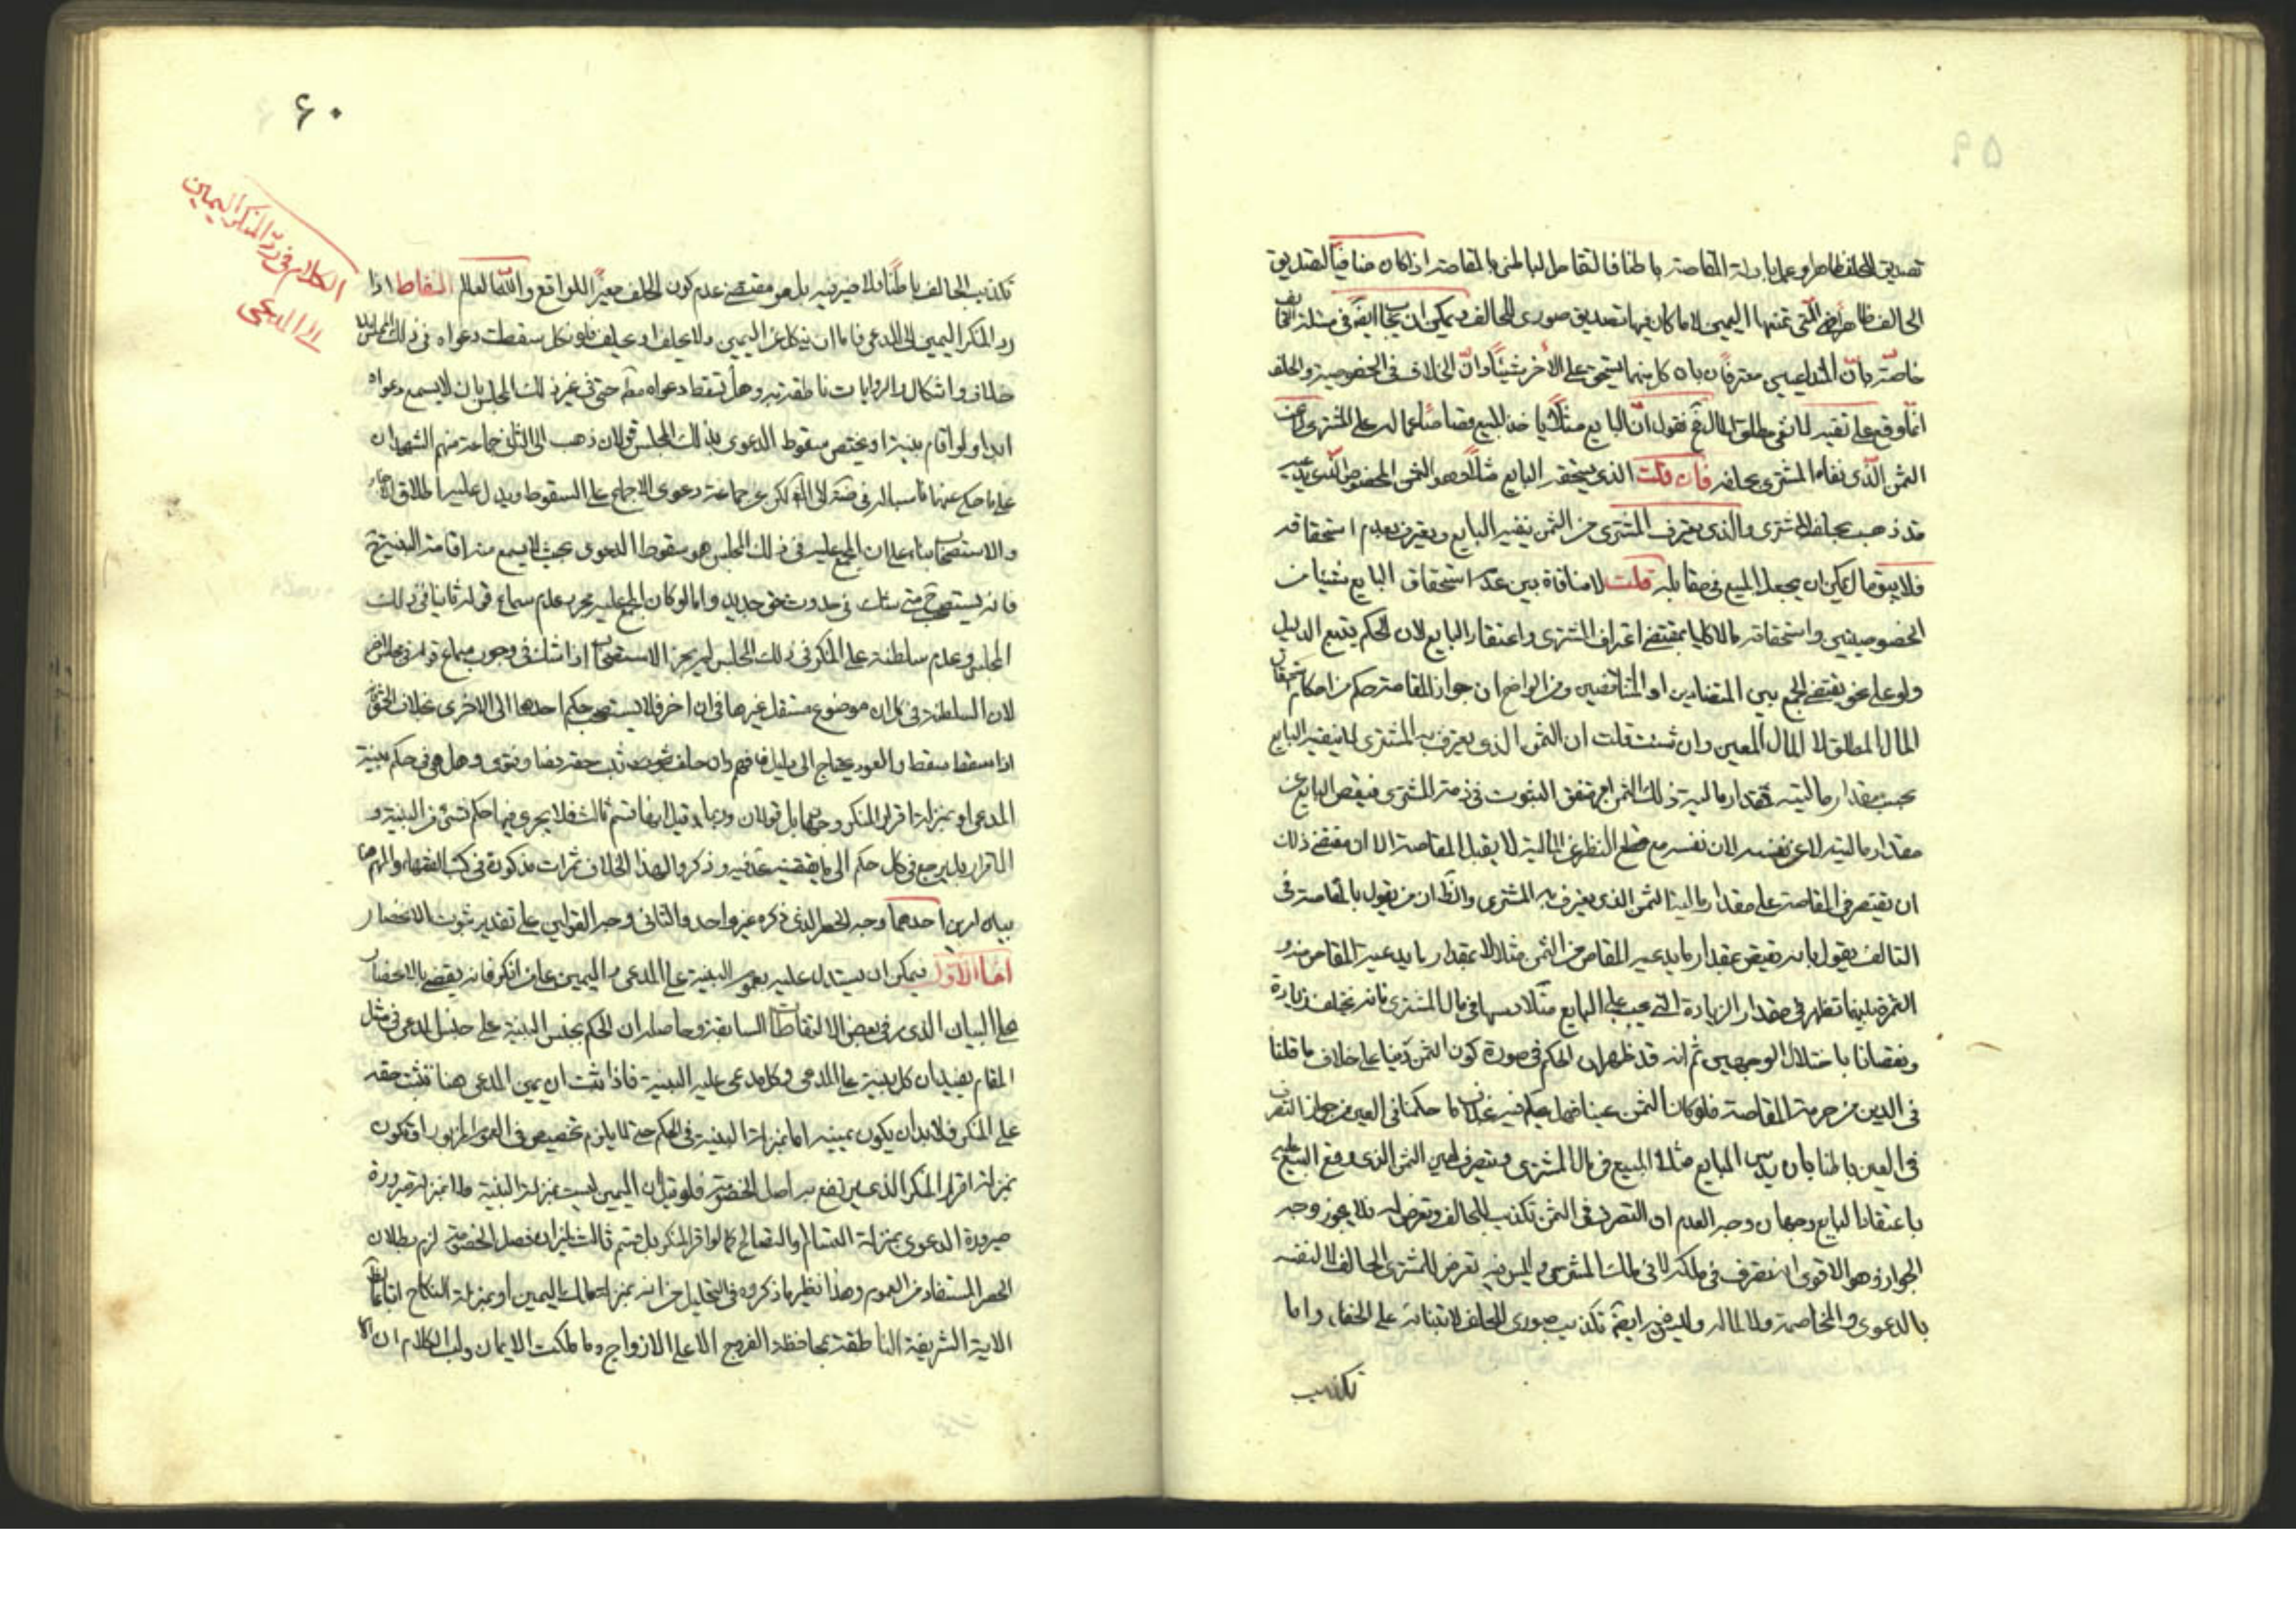 ۵۹
تصديق الحلف ظاهرا وعملا بادلة المقاصة باطنا فالتقاص الباطني بالمقاصة اذا كان منافيا لتصديق
الحالف ظاهرا هي التي تمنعها اليمين لا ما كان فيها تصديق صوري للحالف ويمكن ان يجاب ايضا في مسئلة التحالف
خاصة بان المتداعيين معترفان بان كل منهما يستحق على الآخر شيئا وان الخلاف في الخصوصية والحلف
انما وقع على تقيد لا نفي مطلق المال فنقول ان البايع مثلا ياخذ المبيع مقاصا عما له على المشتري من
الثمن الذي نفاه المشتري بحلفه فان قلت الذي يستحقه البايع مثلا وهو الثمن المخصوص الذي يدعيه
قد ذهب بحلف المشتري والذي يعترف المشتري من الثمن ينفيه البايع ويعترف بعدم استحقاقه
فلا يبقى مال يمكن ان يجعل المبيع في مقابله قلت لا منافاة بين عدم استحقاق البايع شيئا من
الخصوصيتين واستحقاقه مالا كليا بمقتضى اعتراف المشتري واعتقاد البايع لان الحكم يتبع الدليل
ولو على نحو يقتضي الجمع بين المتضادين او المتناقضين ومن الواضح ان جواز المقاصة حكم من احكام استحقاق
المال المطلق لا المال المعين وان شئت قلت ان الثمن الذي يعترف به المشتري لما ينفيه البايع
بحسب مقدار ماليته فمقدار مالية ذلك الثمن امر متفق الثبوت في ذمة المشتري فيقص البايع عن
مقدار ماليته لا عن نفسه لان نفسه مع قطع النظر عن المالية لا يقبل المقاصة الا ان مقتضى ذلك
ان يقتصر في المقاصة على مقدار مالية الثمن الذي يعترف به المشتري والظ ان من يقول بالمقاصة في
التالف يقول بانه يقبض بمقدار ما يدعيه المقاص من الثمن مثلا لا بمقدار ما يدعيه المقاص منه و
الثمرة بينهما تظهر في مقدار الزيادة التي يجب على البايع مثلا دسها في مال المشتري فانه يختلف زيادة
ونقصانا باختلال الوجهين ثم انه قد ظهر ان الحكم في صورة كون الثمن دينا على خلاف ما قلنا
في الدين من حرمة المقاصة فلو كان الثمن عينا فهل يحكم فيه بخلاف ما حكمنا في العين من جواز التصرف
في العين باطنا بان يدس البايع مثلا المبيع في مال المشتري ويتصرف في عين الثمن الذي وقع البيع عليه
باعتقاد البايع وجهان وجه العدم ان التصرف في الثمن تكذيب للحالف وتعرض له فلا يجوز وجه
الجواز وهو الاقوى انه تصرف في ملكه لا في ملك المشتري وليس فيه تعرض للمشتري الحالف لا لنفسه
بالدعوى والمخاصمة ولا لماله وليس فيه ايضا تكذيب صوري للحلف لابتنائه على الخفاء واما
تكذيب
۶۰
الكلام في رد المنكر اليمين
الى المدعي
تكذيب الحالف باطنا فلا ضير فيه بل هو مقتضى عدم كون الحلف مغيرا للواقع والله العالم التقاط اذا
رد المنكر اليمين الى المدعي فاما ان ينكل عن اليمين ولا يحلف او يحلف فلو نكل سقطت دعواه في ذلك المجلس بلا
خلاف واشكال والروايات ناطقة به وهل تسقط دعواه مطلقا حتى في غير ذلك المجلس بان لا يسمع دعواه
ابدا ولو اقام بينة او يختص سقوط الدعوى بذلك المجلس قولان ذهب الى الثاني جماعة منهم الشهيدان
على ما حكي عنهما لكن عن جماعة دعوى الاجماع على السقوط ويدل عليه اطلاق الاخبار
والاستصحاب بناء على ان المجمع عليه في ذلك المجلس هو سقوط الدعوى بحيث لا يسمع منه اقامة البينة ثم
فانه يستصحب متى شك في حدوث حق جديد واما لو كان المجمع عليه مجرد عدم سماع قوله ثانيا في ذلك
المجلس وعدم سلطنة على المنكر في ذلك المجلس لم يجز الاستصحاب اذا شك في وجوب سماع قوله في مجلس آخر
لان السلطنة في كل ان موضوع مستقل غيرها في ان اخر فلا يستصحب حكم احدها الى الاخرى بخلاف الحق فانه
اذا سقط سقط والعود يحتاج الى دليل فافهم وان حلف ثبت حقه نصا وفتوى وهل هي في حكم بينة
المدعي او بمنزلة اقرار المنكر وجهان بل قولان وربما قيل انها قسم ثالث فلا يجري فيها حكم شيء من البينة و
الاقرار بل يرجع في كل حكم الى ما يقتضيه وذكروا لهذا الخلاف ثمرات مذكورة في كتب الفقهاء والمهم هنا
بيان امرين احدهما وجه الحصر الذي ذكره غير واحد والثاني وجه القولين على تقدير ثبوت الانحصار
اما الاول فيمكن ان يستدل عليه بعموم البينة على المدعي واليمين على من انكر فانه يقضي بالانحصار
على البيان الذي مر في بعض الالتقاطات السابقة وحاصله ان الحكم بجنس البينة على جنس المدعي في مثل
المقام يفيد ان كل بينة على المدعي وكل مدعي عليه البينة فاذا ثبت ان يمين المدعي هنا تثبت حقه
على المنكر فلا بد ان يكون يمينه اما بمنزلة البينة في الحكم حتى لا يلزم تخصيص في العموم المزبور او تكون
بمنزلة اقرار المنكر الذي يرتفع به اصل الخصومة فلو قيل ان اليمين ليست بمنزلة البينة ولا بمنزلة صيرورة
صيرورة الدعوى بمنزلة التسالم والتصالح كما لو اقر المنكر بل قسم ثالث لميزان فصل الخصومة لزم بطلان
الحصر المستفاد من العموم وهذا نظير ما ذكروه في التحليل من انه بمنزلة ملك اليمين او بمنزلة النكاح
الاية الشريفة الناطقة بمحافظة الفروج الا على الازواج وما ملكت الايمان ولب الكلام ان